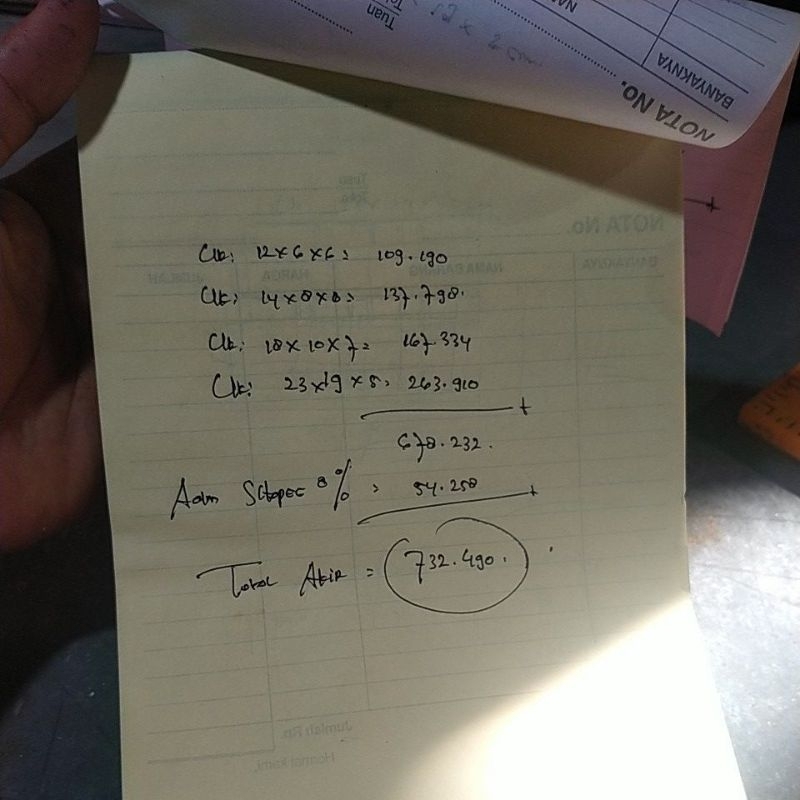 NOTA No.
BANYAKNYA
Tuan
Clk: 12 x 6 x 6 = 109.190
Clk: 14 x 8 x 8 = 137.798.
Clk: 18 x 10 x 7 = 167.334
Clk: 23 x 19 x 5 = 263.910
+
678.232.
Adm Shopee 8% = 54.258
+
Total Akir = 732.490.
NOTA No.
BANYAKNYA
NAMA BARANG
HARGA
JUMLAH
Tuan
Toko
Jumlah Rp.
Hormat kami,